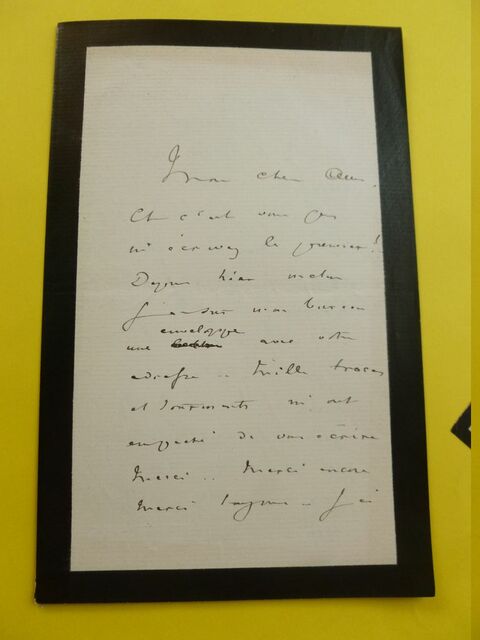 Mon cher
Et c'est vous qui
m'écrivez le premier!
Depuis hier matin
j'ai sur mon bureau
enveloppe
une avec votre
adresse .. Mille tracas
et tourments m'ont
empêché de vous écrire
Merci .. Merci encore
Merci toujours .. J'ai